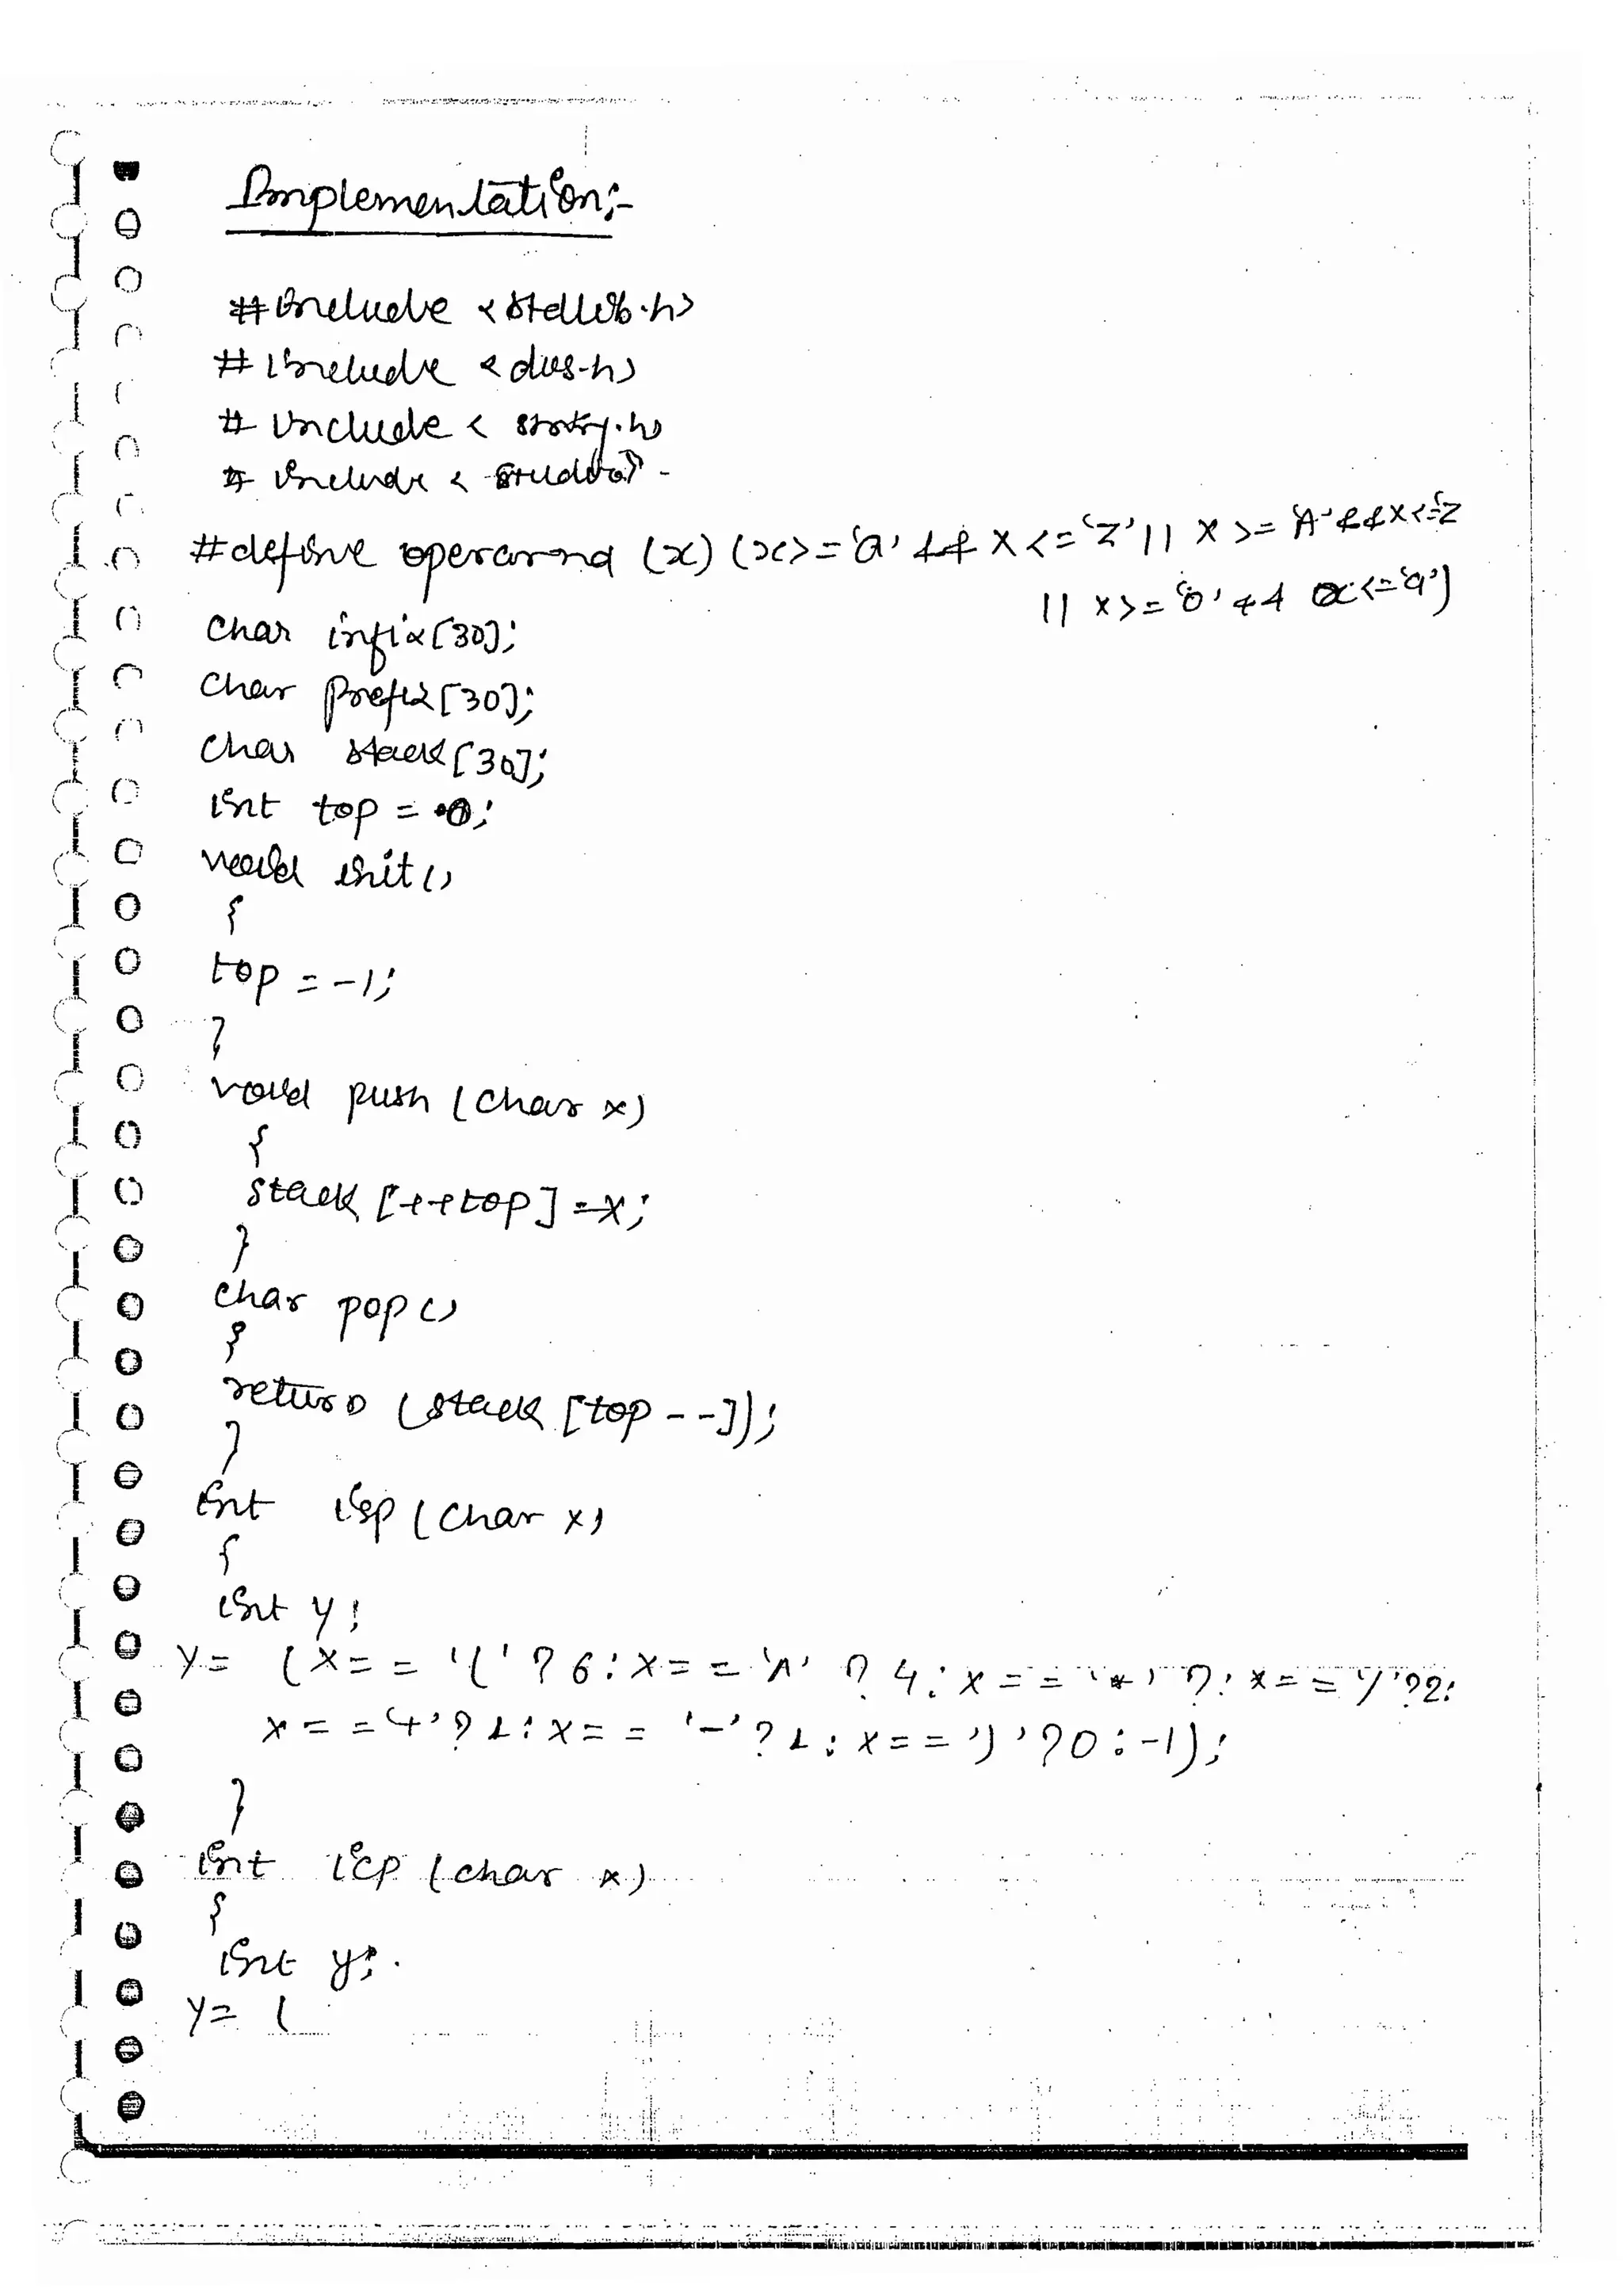 Implementation:-
#include <stdlib.h>
#include <dos.h>
#include <
#include <
#define operarand (x) (x>='a' && x<='z' || x>= 'A' && x<='Z
|| x>='0' && x<='9')
char infix[30];
char prefix[30];
char stack[30];
int top = 0;
void init()
{
top = -1;
}
void push (char x)
{
stack [++top] =x;
}
char pop()
{
return (stack [top--]);
}
int isp (char x)
{
int y;
y= (x== '(' ? 6: x== '^' ? 4: x== '*' ?: x== '/'?2:
x== '+'? 1: x== '-'? 1: x== ')'?0:-1);
}
int icp (char x)
{
int y;
y= (